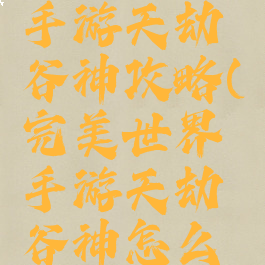 手游天劫
谷神攻略(
完美世界
手游天劫
谷神怎么